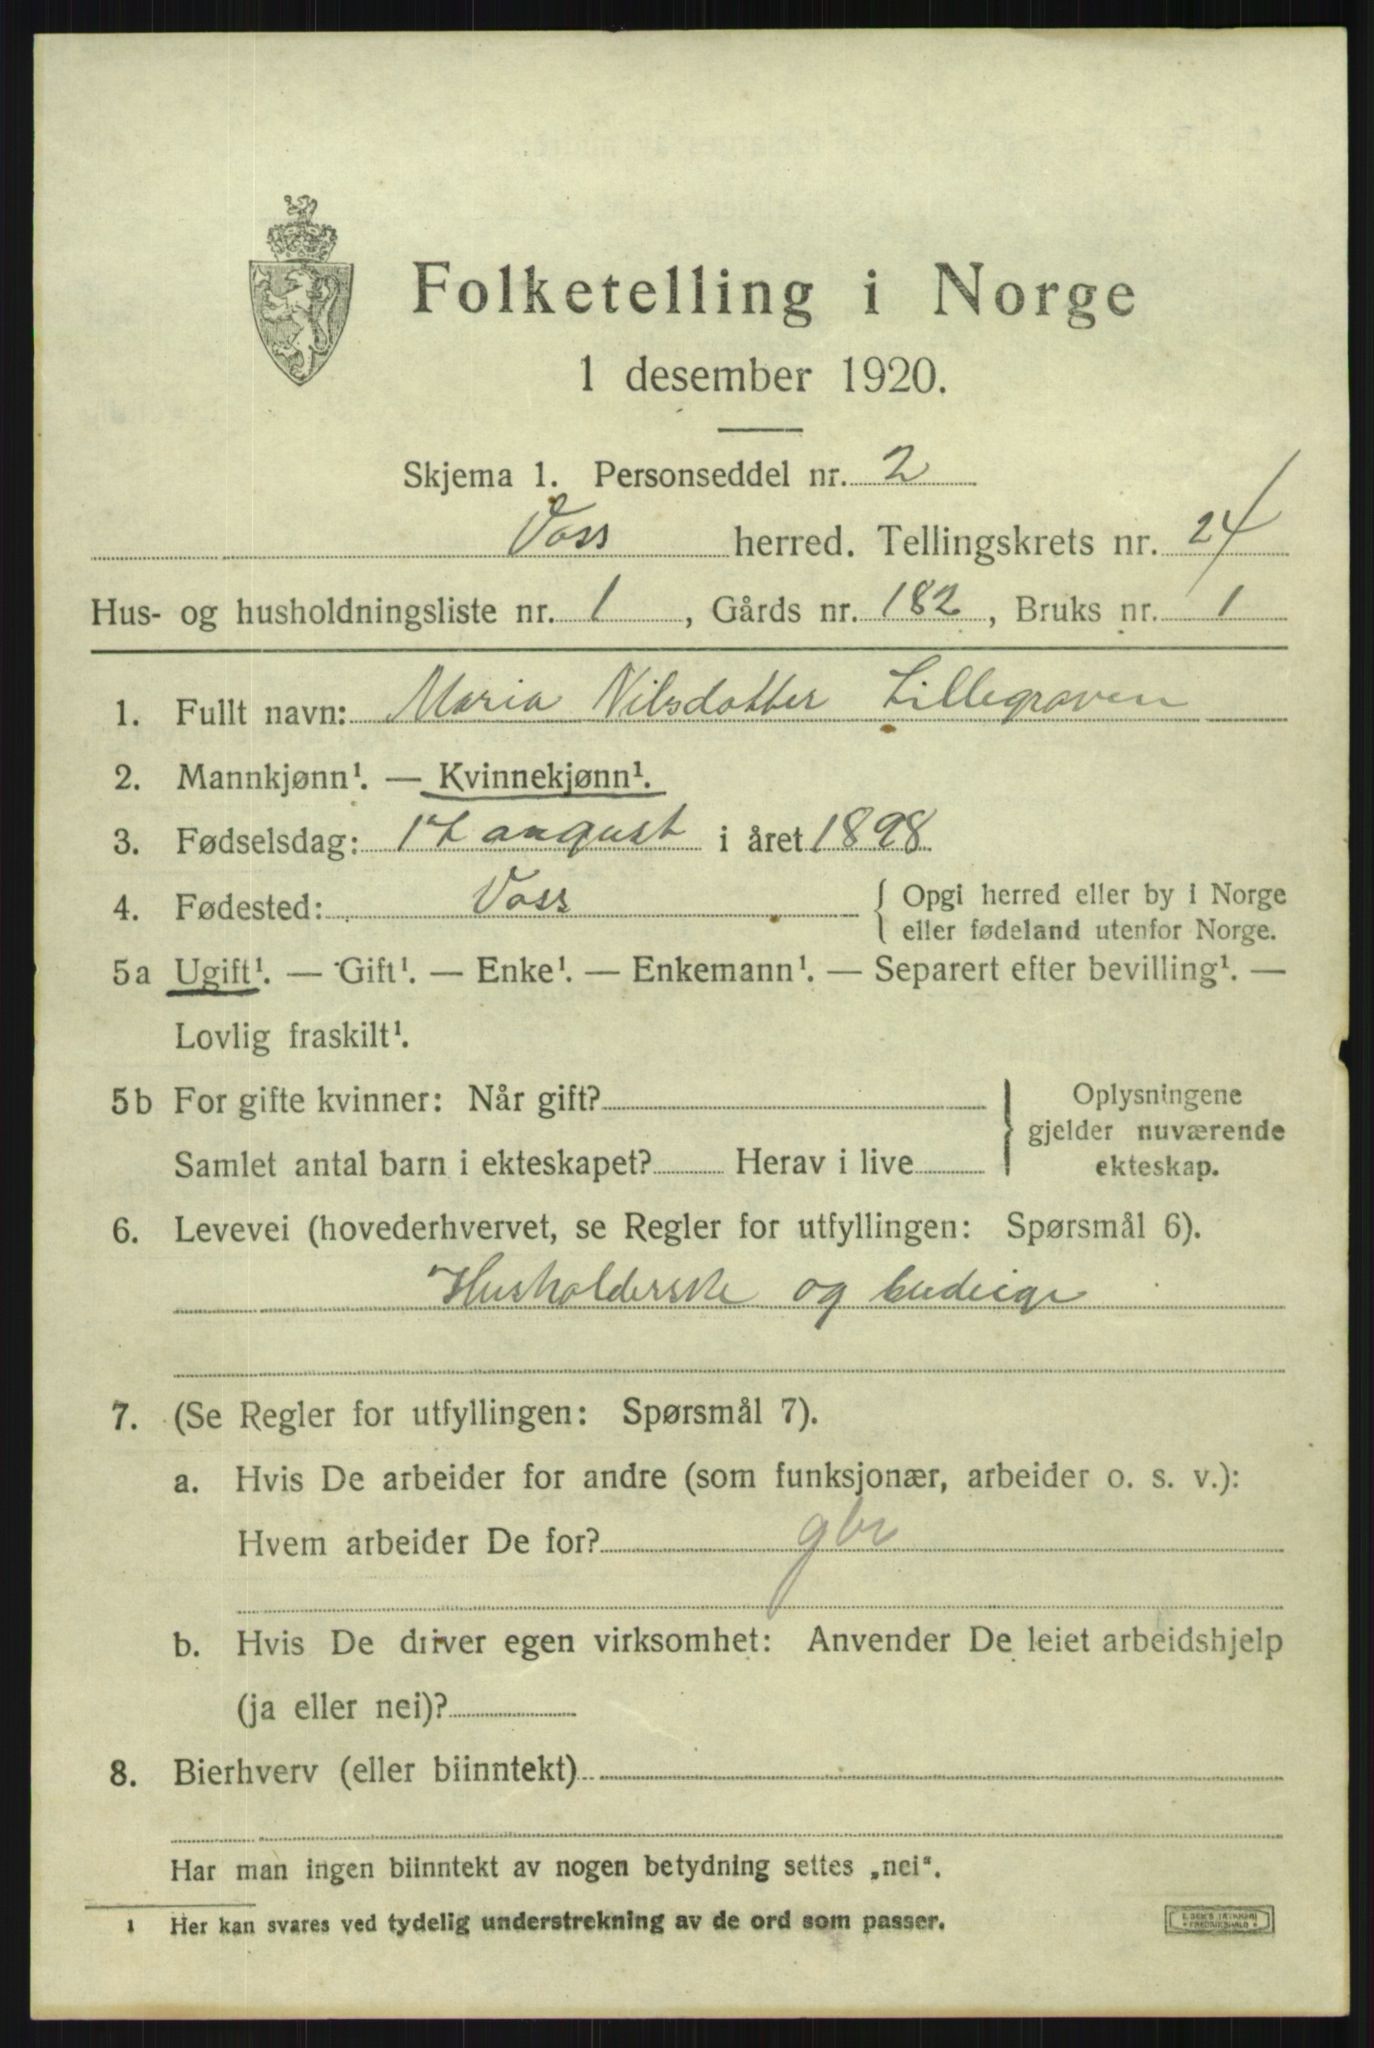 Folketelling i Norge
1 desember 1920.
Skjema 1. Personseddel nr. 2
Voss herred. Tellingskrets nr. 24
Hus- og husholdningsliste nr. 1, Gårds nr. 182, Bruks nr. 1
1. Fullt navn: Maria Nilsdotter Lillegraven
2. Mannkjønn¹. — Kvinnekjønn¹.
3. Fødselsdag: 17 august i året 1898
4. Fødested: Voss { Opgi herred eller by i Norge
eller fødeland utenfor Norge.
5a Ugift¹. — Gift¹. — Enke¹. — Enkemann¹. — Separert efter bevilling¹. —
Lovlig fraskilt¹.
5b For gifte kvinner: Når gift?
Samlet antal barn i ekteskapet? Herav i live
} Oplysningene
gjelder nuværende
ekteskap.
6. Levevei (hovederhvervet, se Regler for utfyllingen: Spørsmål 6).
Husholderske og budeige
7. (Se Regler for utfyllingen: Spørsmål 7).
a. Hvis De arbeider for andre (som funksjonær, arbeider o. s. v.):
Hvem arbeider De for? gbr
b. Hvis De driver egen virksomhet: Anvender De leiet arbeidshjelp
(ja eller nei)?
8. Bierhverv (eller biinntekt)
Har man ingen biinntekt av nogen betydning settes „nei“.
¹ Her kan svares ved tydelig understrekning av de ord som passer.